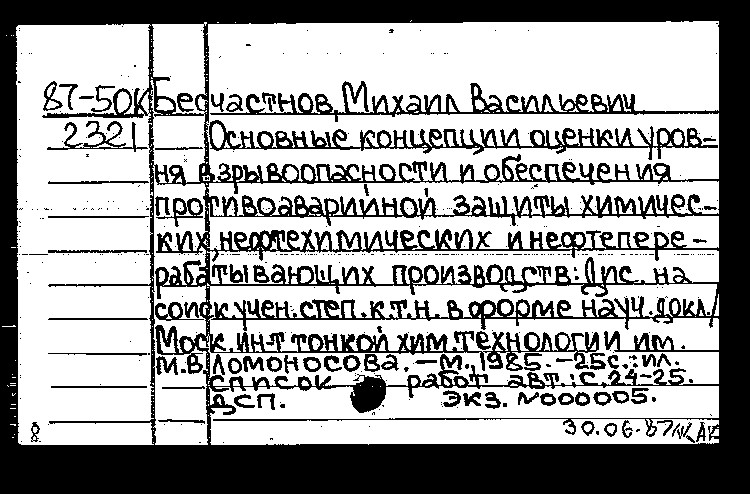 87-50К Бесчастнов, Михаил Васильевич
2321 Основные концепции оценки уров-
ня взрывоопасности и обеспечения
противоаварийной защиты химичес-
ких, нефтехимических и нефтепере-
рабатывающих производств: Дис. на
соиск. учен. степ. к.т.н. в форме науч. докл./
Моск. ин-т тонкой хим. технологии им.
М.В. Ломоносова. — М., 1985. — 25с.: ил.
список работ авт.: с. 24-25.
ДСП. экз. №000005.
30.06.87